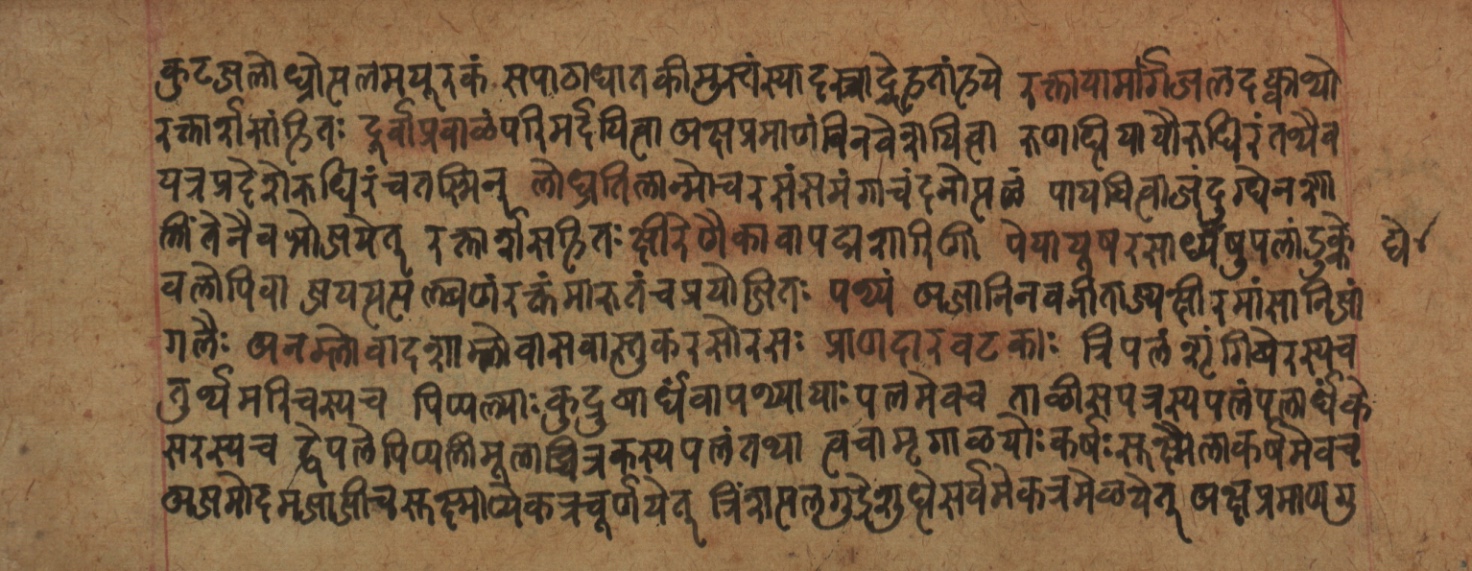 कुटजलोध्रोसलमयूरकं सपाठाधातकीमुस्तंस्याद रक्तापामार्गिजलदक्वाथो
रक्तार्शसांहितः दूर्वाप्रवाळंपरिमर्दयित्वा अक्षप्रमाणंविनवेशयित्वा रुणद्धियायौरुधिरंतथैव
यत्रप्रदेशेरुधिरंचतस्मिन् लोध्रतिलान्मोचरसंसमंगाचंदनोत्पळं पाययित्वाजंदुग्धेनशा
लिंतेनैवभोजयेत् रक्तार्शसहितः क्षीरिणैकावापद्मशारिणी पेयायूषरसाध्येषुपलांडुके
वलोपिवा जयत्यसंलबणंरक्तंमारुतंचप्रयोजितः पथ्यं अजानिनवनीताज्यक्षीरमांसानिजां
गलैः अनम्लोवादशाम्लोवासवास्तुकरसोरसः प्राणदारवटकाः त्रिपलंशृंगिवेरस्यच
तुर्थमरिचस्यच पिप्पल्याःकुदुबार्धंवापथ्यायाःपलमेवच ताळीसपत्रस्यपलंपलार्धंके
सरस्यच द्वेपलेपिप्पलीमूलाच्चित्रकस्यपलंतथा त्वचामृगाळयोःकर्षःसूक्ष्मैलाकर्षमेवच
अजमोदमजाजीचसूक्ष्माण्येकत्रचूर्णयेत् त्रिंशत्पलगुडेशुद्धेसर्वमेकत्रमेळयेत् अक्षप्रमाणगु